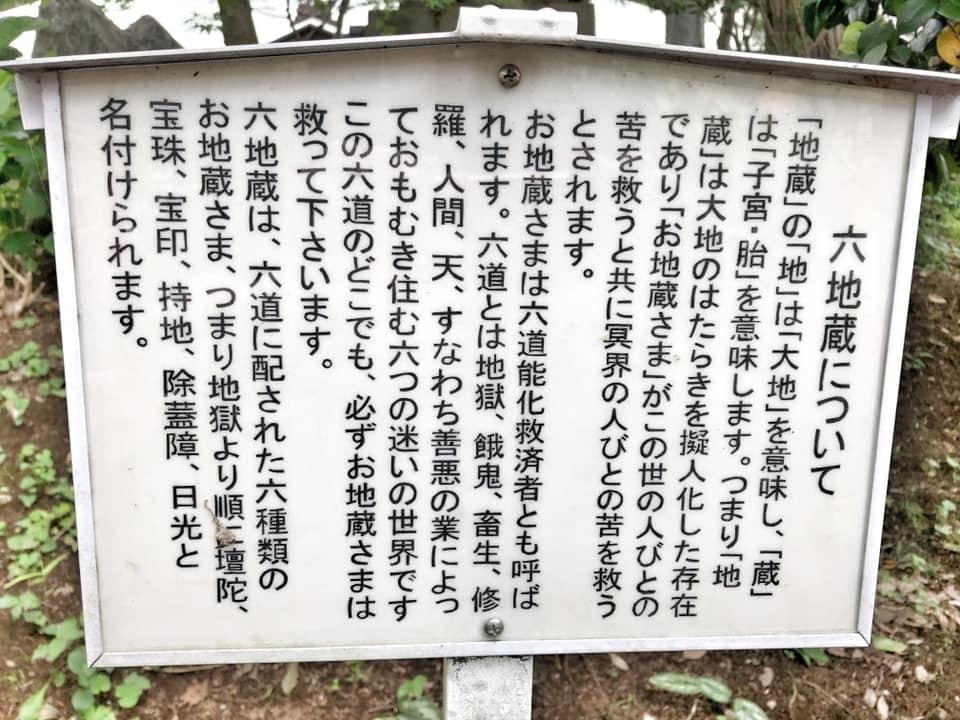 六地蔵について
「地蔵」の「地」は「大地」を意味し、「蔵」
は「子宮・胎」を意味します。つまり「地
蔵」は大地のはたらきを擬人化した存在
であり「お地蔵さま」がこの世の人びとの
苦を救うと共に冥界の人びとの苦を救う
とされます。
お地蔵さまは六道能化救済者とも呼ば
れます。六道とは地獄、餓鬼、畜生、修
羅、人間、天、すなわち善悪の業によっ
ておもむき住む六つの迷いの世界です
この六道のどこでも、必ずお地蔵さまは
救って下さいます。
六地蔵は、六道に配された六種類の
お地蔵さま、つまり地獄より順に壇陀、
宝珠、宝印、持地、除蓋障、日光と
名付けられます。